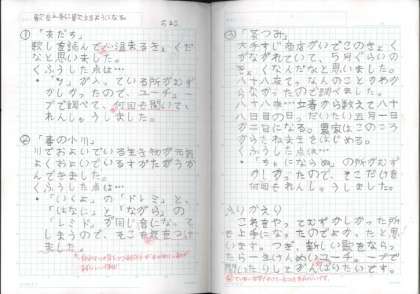 歌を上手に歌えるようになる。
①「友だち」
歌しを読んで心温まるき。くだ
なと思いました。
くふうした点は…
・「っ」が入っている所がむず
かしかったので、ユーチューブ
で調べて、何回も聞いて、
れんしゅうしました。
②「春の小川」
川でおよいでいる生き物が元気
よくおよいでいるすがたがうか
んできました。
くふうした点は…
・「いくよ」の「ドレミ」と、
「はなに」と「ながら」の
「レミド」が同じ音になって
しまうので、そこを気をつけ
ました。
③「茶つみ」
大手すじ商店がいでこのき。く
がながれていて、5月ぐらいの
き。くなんだなと思いました。
八十八夜って、なんのことかわか
らなかったので調べました。
八十八夜…立春から数えて八十
八日目の日。だいたい五月一日
か二日になる。農家はこのころ
からたねまきをはじめる。
くふうした点は…
・「ちゃにならぬ」の所がむず
かしかったので、そこだけを
何回もれんしゅうしました。
ふりかえり
これをやってむずかしかった所
も上手になったのでよかったと思
います。つぎ、新しい歌をなら
ったら一生けんめいユーチューブで
聞いたりしてがんばりたいです。